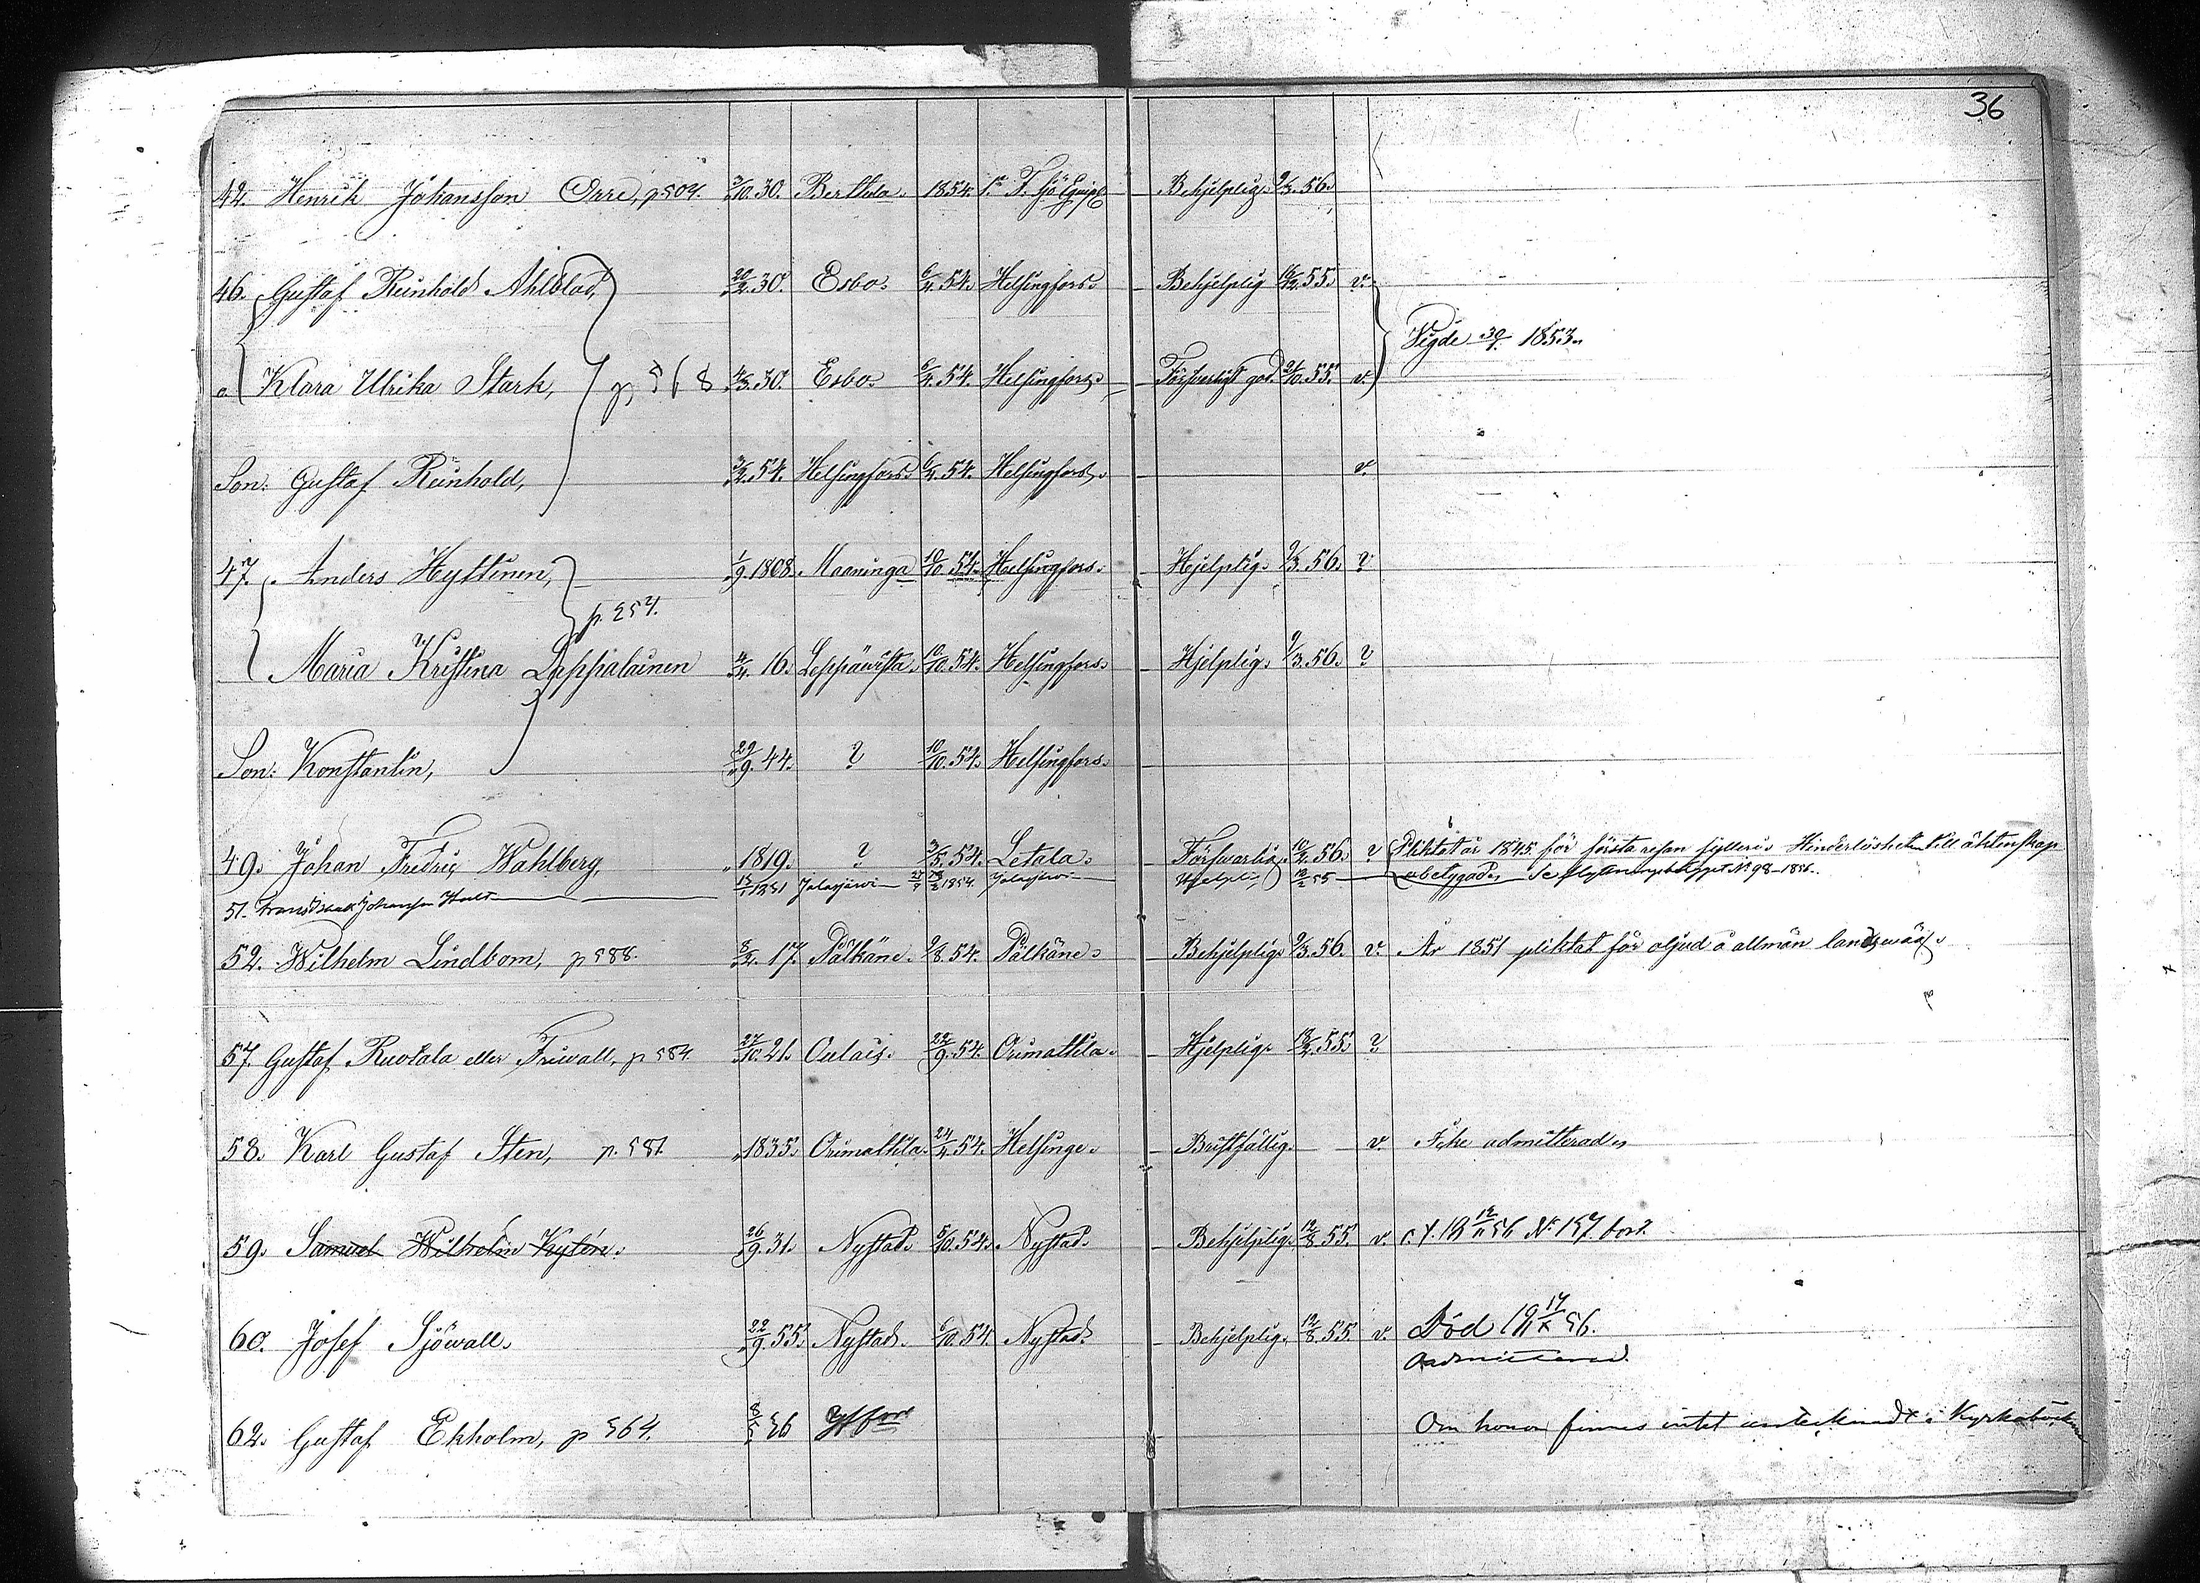 36
42. Henrik Johansson Orre, p 504. 3/10. 30. Berttula. 1854. Behjelplig. 9/3. 56.
46. Gustaf Reinhold Ahlblad, 20/2. 30. Esbo. 6/4. 54. Helsingfors. Behjelplig 18/2. 55. v.
Vigde 30/9. 1853.
Klara Ulrika Stark, p 568 4/3. 30. Esbo. 6/4. 54. Helsingfors. Försvarligt god. 2/10. 55. v.
Son: Gustaf Reinhold, 3/2. 54. Helsingfors. 6/4. 54. Helsingfors. v.
47. Anders Hyttinen, 1/9. 1808. Maaninga 10/10 54. Helsingfors. Hjelplig. 9/3. 56. ?
p. 257.
Maria Kristina Lappalainen 4/4. 16. Leppävirta. 10/10. 54. Helsingfors. Hjelplig. 9/3. 56. ?
Son: Konstantin, 29/9. 44. ? 10/10. 54. Helsingfors.
49. Johan Fredric Wahlberg, 1819. ? 3/5. 54. Letala. Försvarlig. 10/2. 56. ? Pliktat år 1845 för första resan fylleri. Hinderlöshet till äktenskap
51. Frans Isaak Johansson 1831 Jalasjärvi 1854. Jalasjärvi Hjelpli. 18/2 55 obetygad. Se No 98-1856.
52. Wilhelm Lindbom, p 588. 8/2. 17. Pälkäne. 9/8. 54. Pälkäne. Behjelplig. 9/3. 56. v. År 1851 pliktat för oljud å allmän landsväg.
57. Gustaf Ruotala eller Friwall, p 584. 27/10. 21. Oulais. 22/9. 54. Orimattila. Hjelplig. 18/2. 55. ?
58. Karl Gustaf Sten, p. 581. 1835. Orimattila. 24/4. 54. Helsinge. Bristfällig. v. Icke admitterad.
59. Samuel Wilhelm Kytén. 26/9. 31. Nystad. 5/10. 54. Nystad. Behjelplig. 12/8. 55. v. 18 12/11 56 No 157. bort.
60. Josef Sjöwall. 22/9. 55. Nystad. 5/10. 54. Nystad. Behjelplig. 12/8. 55. v. Död 18 17/X 56.
admitterad.
62. Gustaf Ekholm, p 564. 56 Om honom finnes intet antecknadt i Kyrkoboken